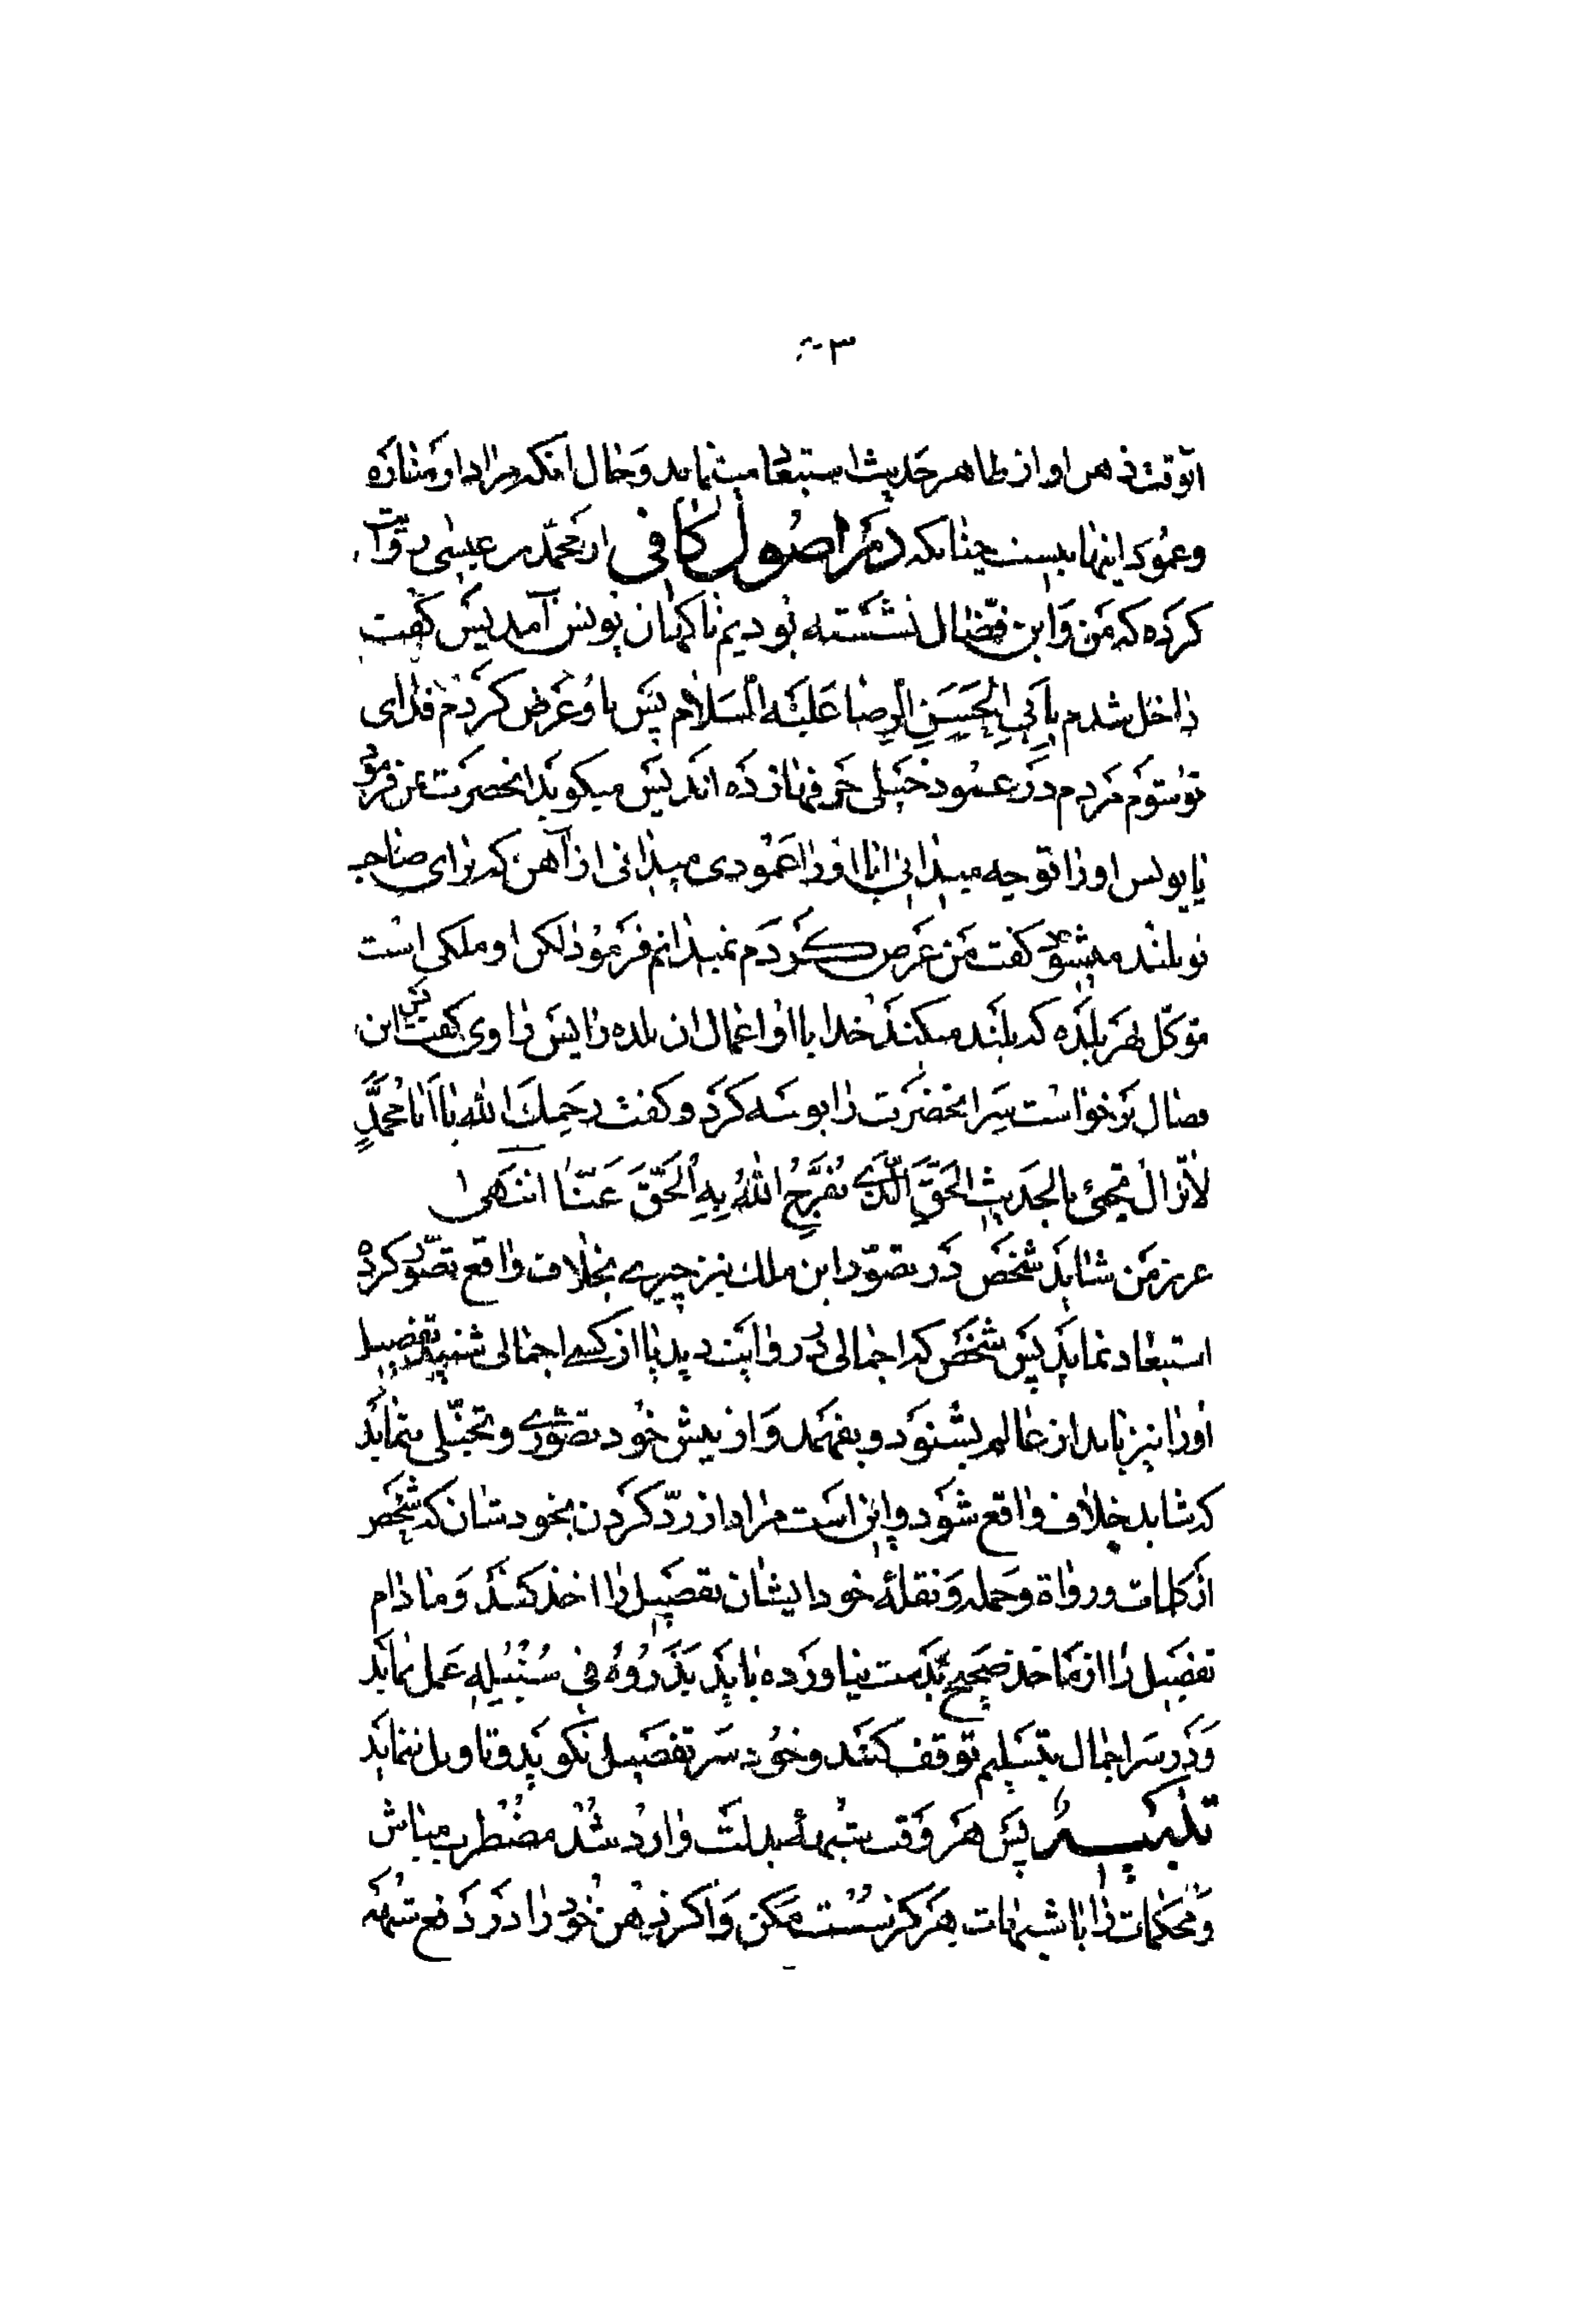 ۳۰۸
آنوقت ذهن او از ظاهر حدیث استبعاد مینماید و حال آنکه مراد او مناره
و عمود اینها نیست چنانکه در اصول کافی از محمد بن عیسی روایت
کرده که من و ابن فضال نشسته بودیم ناگهان یونس آمد پس گفت
داخل شدم بِأَبِی الْحَسَنِ الرِّضا عَلَیْهِ السَّلام پس باو عرض کردم فدای
تو شوم مردم در عمود خیلی حرفها زده اند پس میگوید آنحضرت بمن فرمود
یا یونس او را تو چه میدانی آیا او را عمودی میدانی از آهن که برای صاحب
تو بلند میشود گفت من عرض کردم نمیدانم فرمود لکن او ملکی است
موکل بهر بلده که بلند میکند خدا با او اعمال آن بلده را پس راوی گفت پس ابن
فضال برخواست سر آنحضرت را بوسه کرد و گفت رَحِمَكَ اللّٰه یا اَبا مُحمَّدٍ
لاٰتَزالُ تَجیٔ بِالحَدیثِ الْحَقِّ الَّذی یُفَرِّجُ اللّٰهُ بِهِ الْحَقَّ عَنّا انتهی
عزیز من شاید شخص در تصور این ملك نیز چیزی بخلاف واقع تصور کرده
استبعاد نماید پس شخص که اجمالی در روایت دید یا از کسی اجمالی شنید تفصیل
او را نیز باید از عالم بشنود و بفهمد و از پیش خود تصوری و تخیلی ننماید
که شاید خلاف واقع شود و این است مراد از رد کردن بخودشان که شخص
از کلمات و رواة و حمله و نقلهٔ خود ایشان تفصیل را اخذ کند و مادام
تفصیل را از مأخذ صحیح بدست نیاورده باید بَذَرُوهُ فی سُنْبُلِهِ عمل نماید
و در سر اجمال بتسلیم توقف کند و خود سر تفصیل نگوید و تاویل ننماید
پس هر وقت شبههٔ بدلت وارد شد مضطرب مباش
و محکمات را با شبهات هرگز سست مکن و اگر ذهن خود را در دفع شبهه